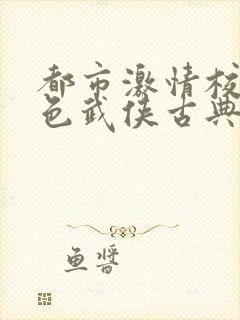 都市激情校
色武侠古典
鱼酱